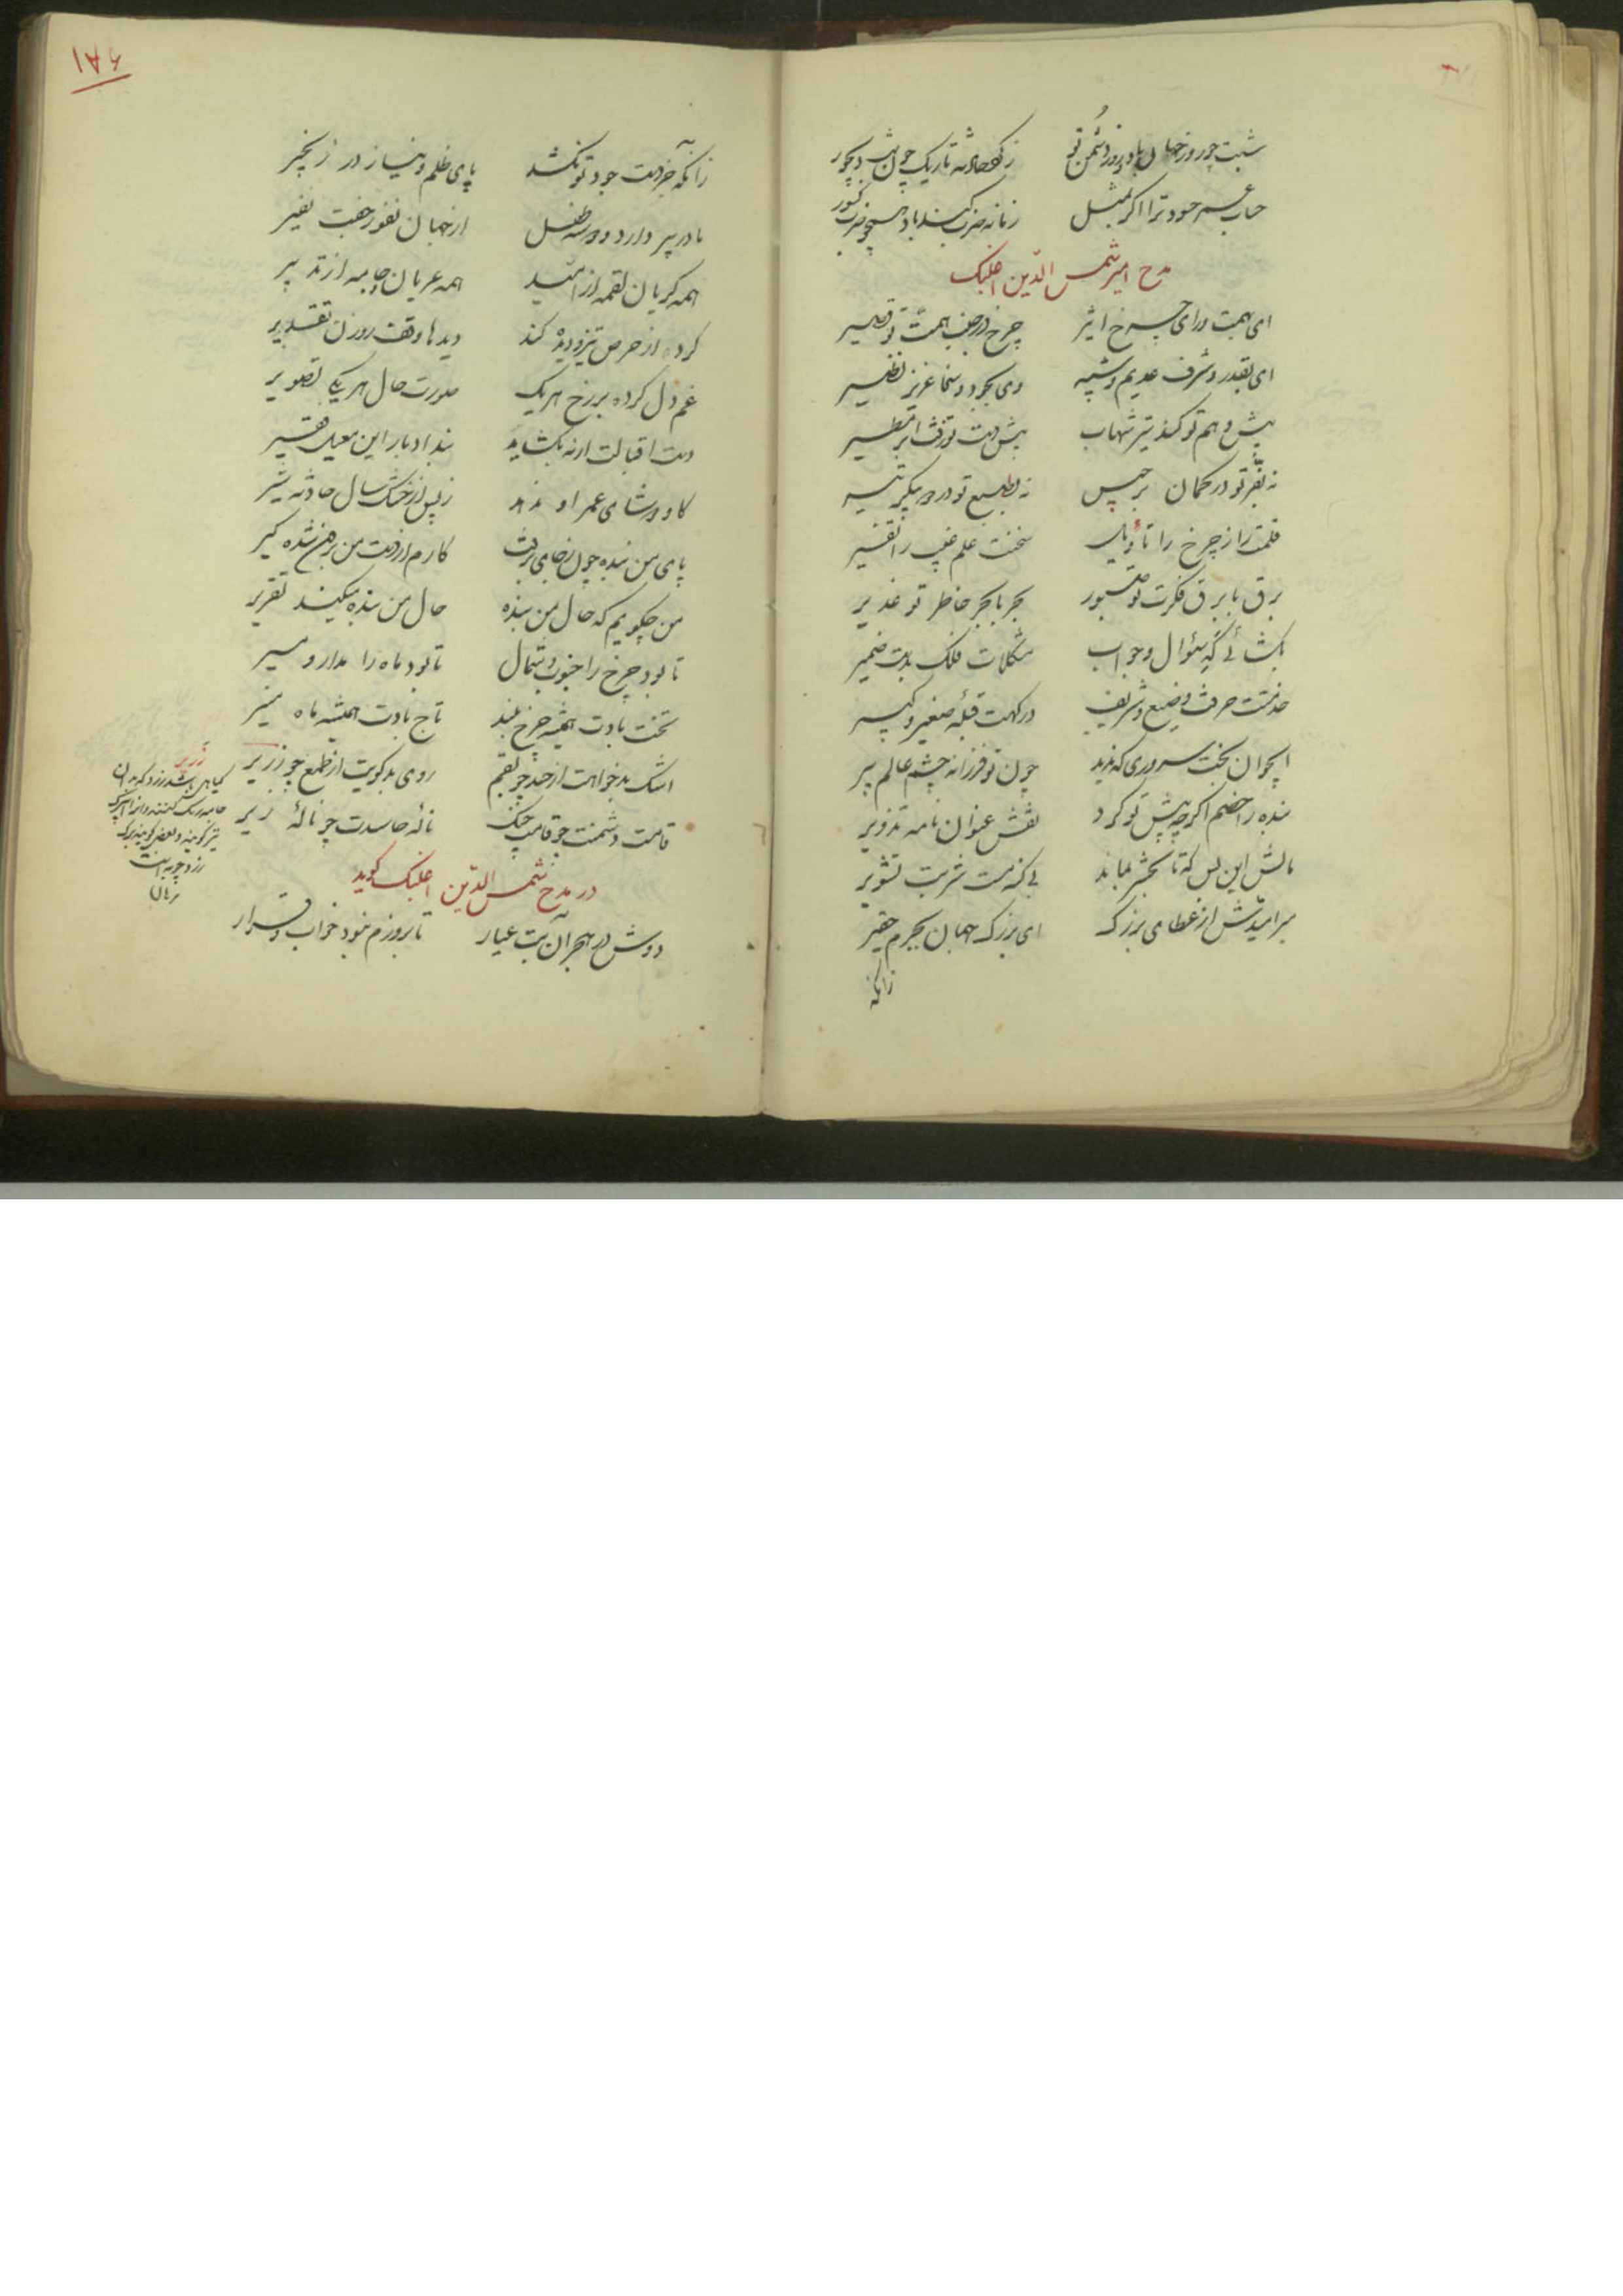 شبت چو روز جهان باد و روز دشمن تو    ز گرد حادثه تاریک چون شب دیجور
حساب عمر حسود ترا اگر بمثل    زمانه ضرب کند باد همچو ضرب کسور
مدح امیر شمس الدین اغلبک
ای بهمت ورای چرخ اثیر    چرخ در جنب همت تو قصیر
ای بقدر و شرف عدیم شبیه    وی بجود و سخا عزیز نظیر
پیش وهم تو کند تیر شهاب    پیش دست تو زفت ابر مطیر
نه تفکر تو در کمان برجیس    نه بطبع تو در دو پیکر تیر
قلمت راز چرخ را تأویل    سخنت علم غیب را تفسیر
برق با برق فکرت تو صبور    بحر با بحر خاطر تو غدیر
بگشائی گه سئوال و جواب    مشکلات فلک بدست ضمیر
خدمتت حرفت وضیع و شریف    درگهت قبله صغیر و کبیر
ایجوان بخت سروری که ندید    چون تو فرزانه چشم عالم پیر
بنده را خصم اگر چه پیش تو کرد    نقش عنوان نامه تذویر
مالش این بس که تا بحشر بماند    بی گنه مست شربت تشویر
بر امیدش از عطای بزرگ    ای بزرگ جهان بجرم حقیر
زانکه
۱۸۶
زانکه جز دست جود تو نکشد    پای ظلم و نیاز در زنجیر
مادر پیر دارد و دو سه طفل    از جهان نفور جفت نفیر
همه گریان لقمه از امید    همه عریان جامه از تدبیر
کرده از حرص تیز و دیده کند    دیدها وقف روزن تقدیر
غم دل کرده بر رخ هر یک    صورت حال هر یکی تصویر
دست اقبالت ارنه بگشاید    بند ادبار این معیل فقیر
گاو دوشای عمر او ندهد    زین پس از خشک سال حادثه شیر
پای من بنده چون ز جای برفت    کارم از دست من برون شده گیر
من چگویم که حال من بنده    حال من بنده میکند تقریر
تا بود چرخ را جنوب و شمال    تا بود ماه را مدار و مسیر
تخت بادت همیشه چرخ بلند    تاج بادت همیشه ماه منیر
اشک بدخواهت از حسد چو بقم    روی بدگویت از طمع چو زریر
قامت دشمنت چو قامت چنگ    نالهٔ حاسدت چو نالهٔ زیر
زریر
گیاهی باشد زرد که بدان
جامه رنگ کنند و آنرا اسپرک
نیز گویند و بعضی گویند برگ
زرد چوبه است
برهان
در مدح شمس الدین اغلبک گوید
دوش در هجر آن بت عیار    تا بروزم نبود خواب و قرار